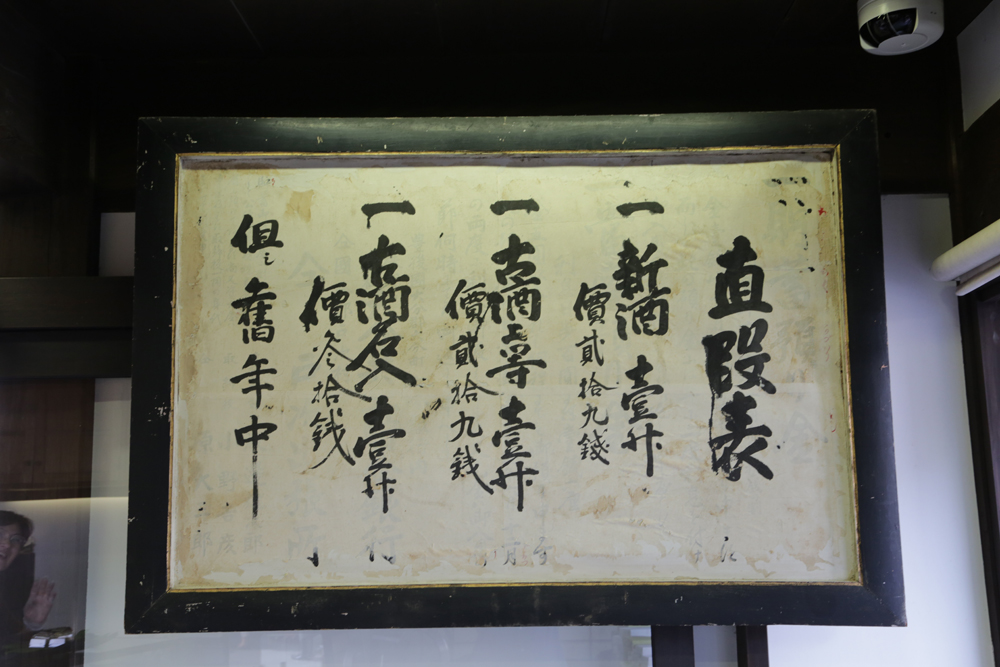 直段表
一 新酒 壹升
價貳拾九錢
一 古酒上等 壹升
價貳拾九錢
一 古酒名人 壹升
價叄拾錢
但シ舊年中